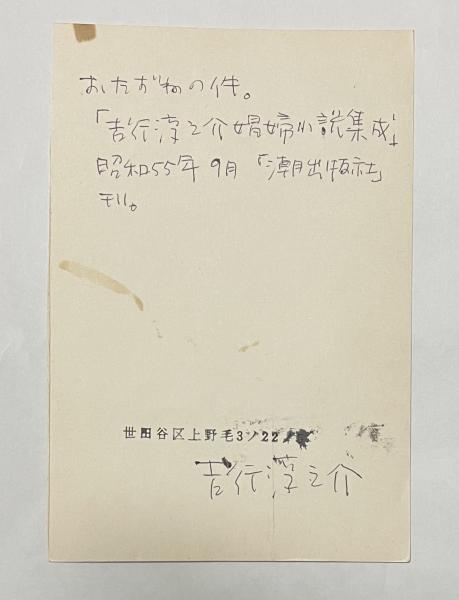 おたずねの件。
「吉行淳之介娼婦小説集成」
昭和55年9月「潮出版社」
刊。
世田谷区上野毛3ソ22
吉行淳之介